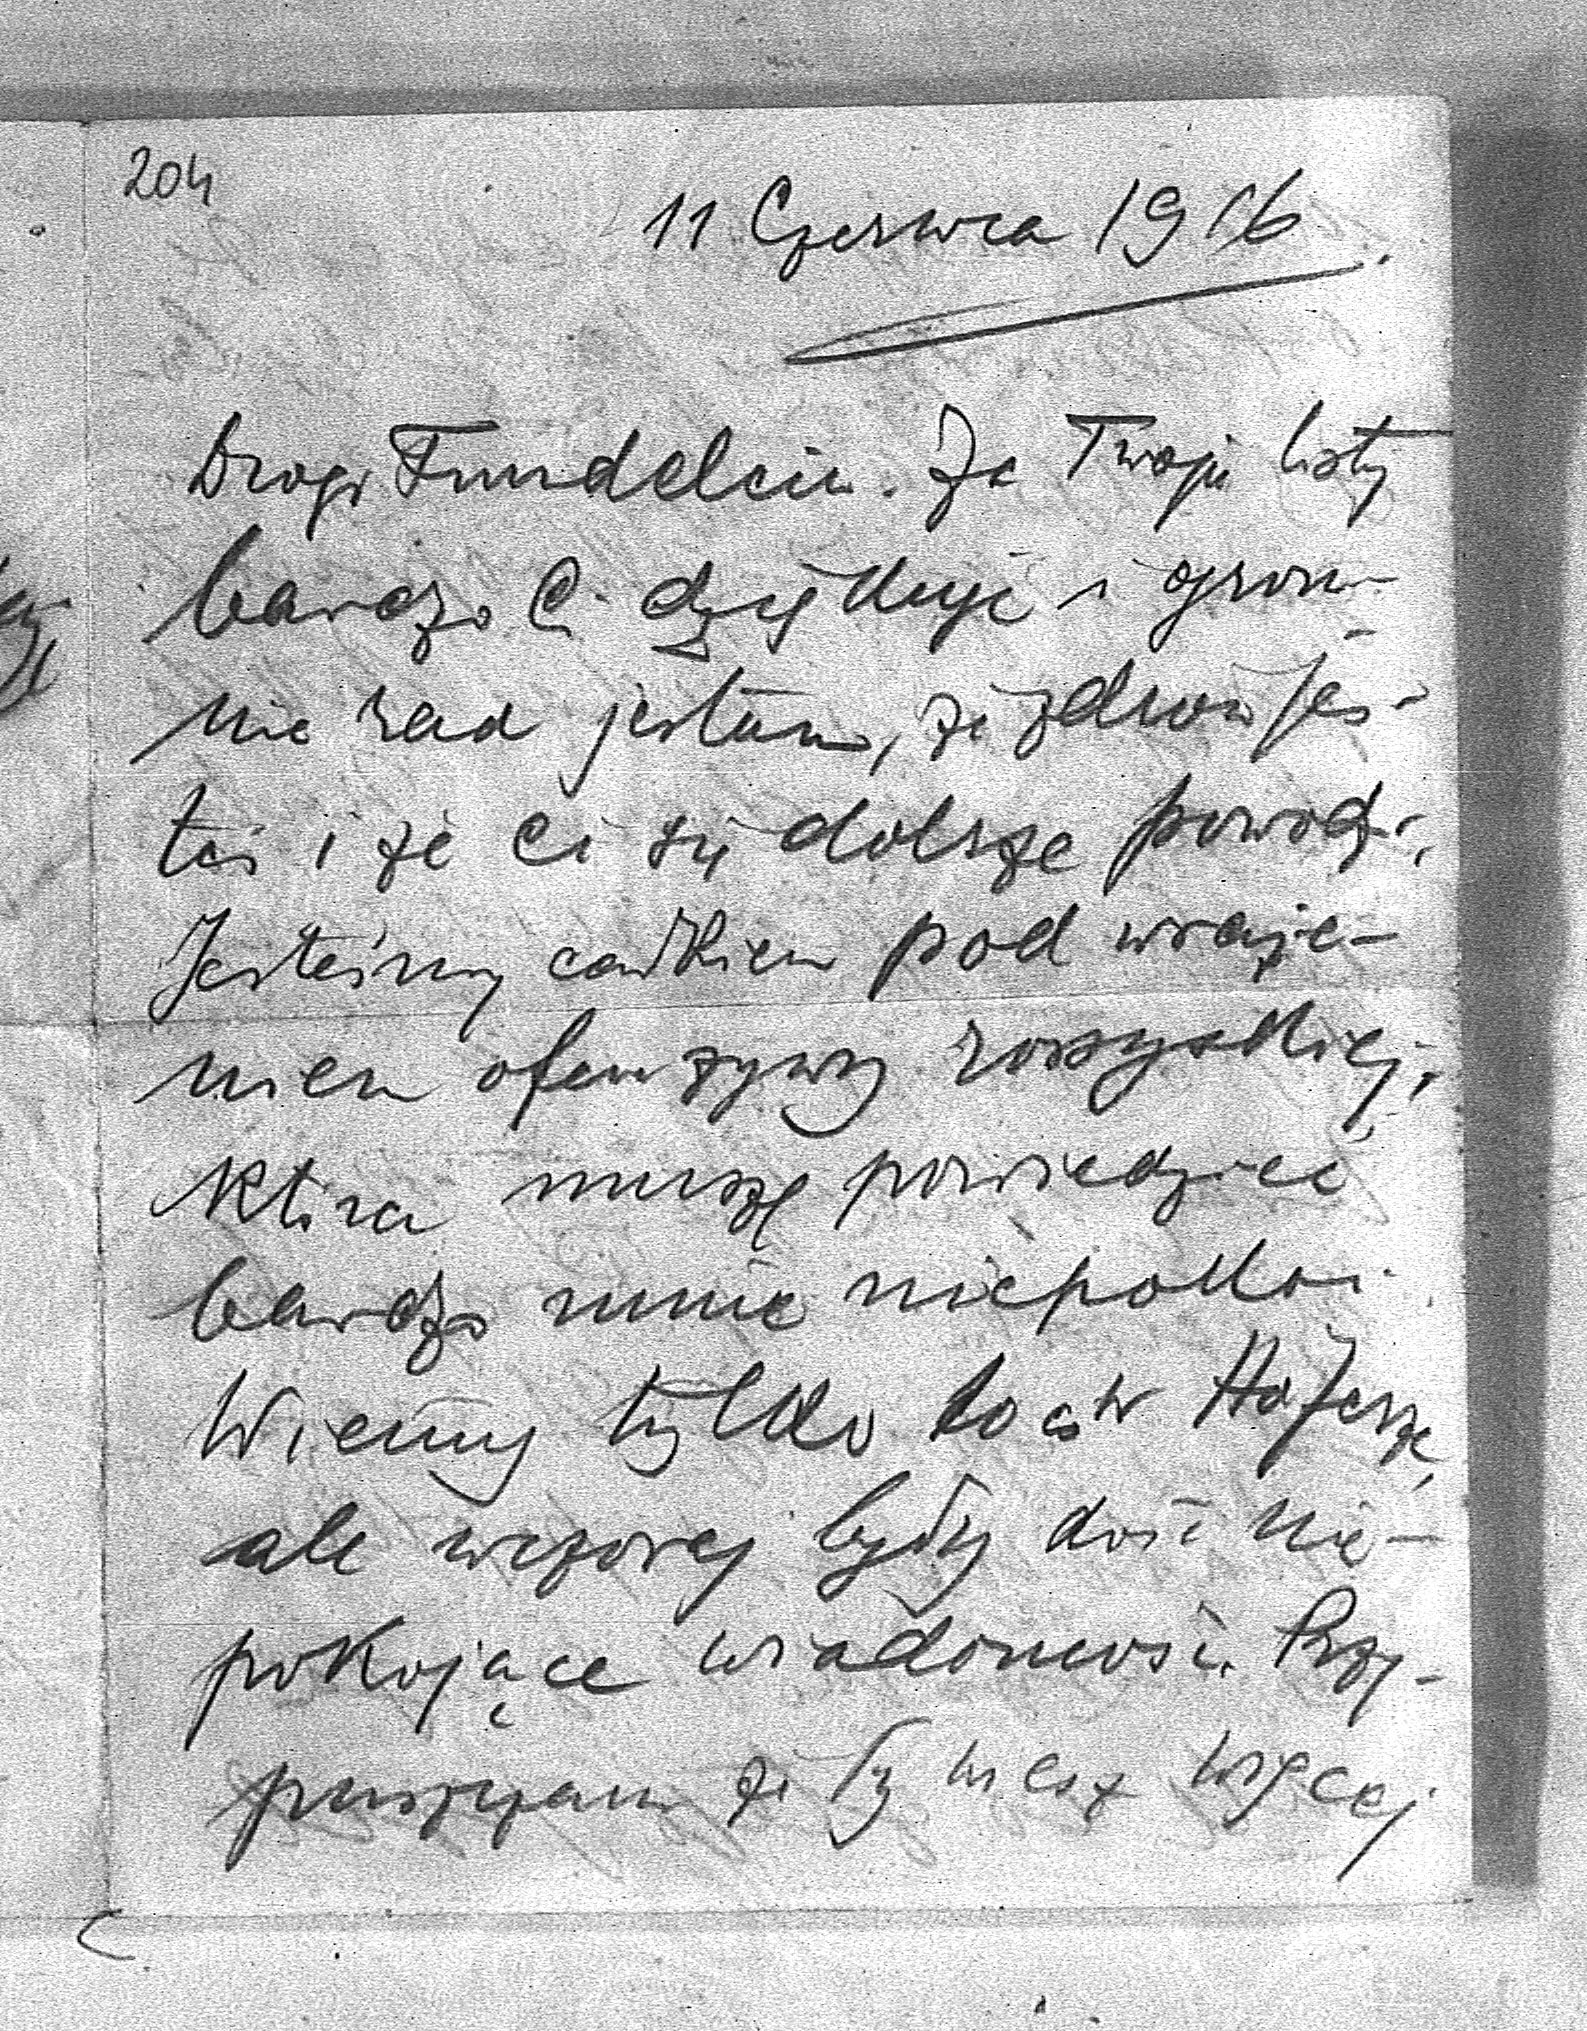 204
11 Czerwca 1916.
Drogi Fundelciu. Za Twoje listy
bardzo Ci dziękuję i ogrom-
nie rad jestem, że zdrów jes-
teś i że Ci się dobrze powodzi,
Jesteśmy całkiem pod wraże-
niem ofenzywy rossyjskiej,
która muszę powiedzieć
bardzo mnie niepokoi
Wiemy tylko to co w
ale wczoraj były dość nie-
pokojące wiadomości. Przy-
puszczam że Ty wiesz więcej